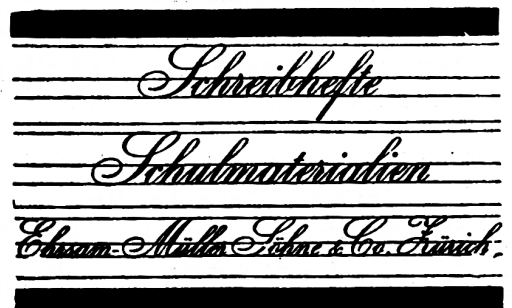 Schreibhefte
Schulmaterialien
Ehrsam-Müller Söhne & Co. Zürich